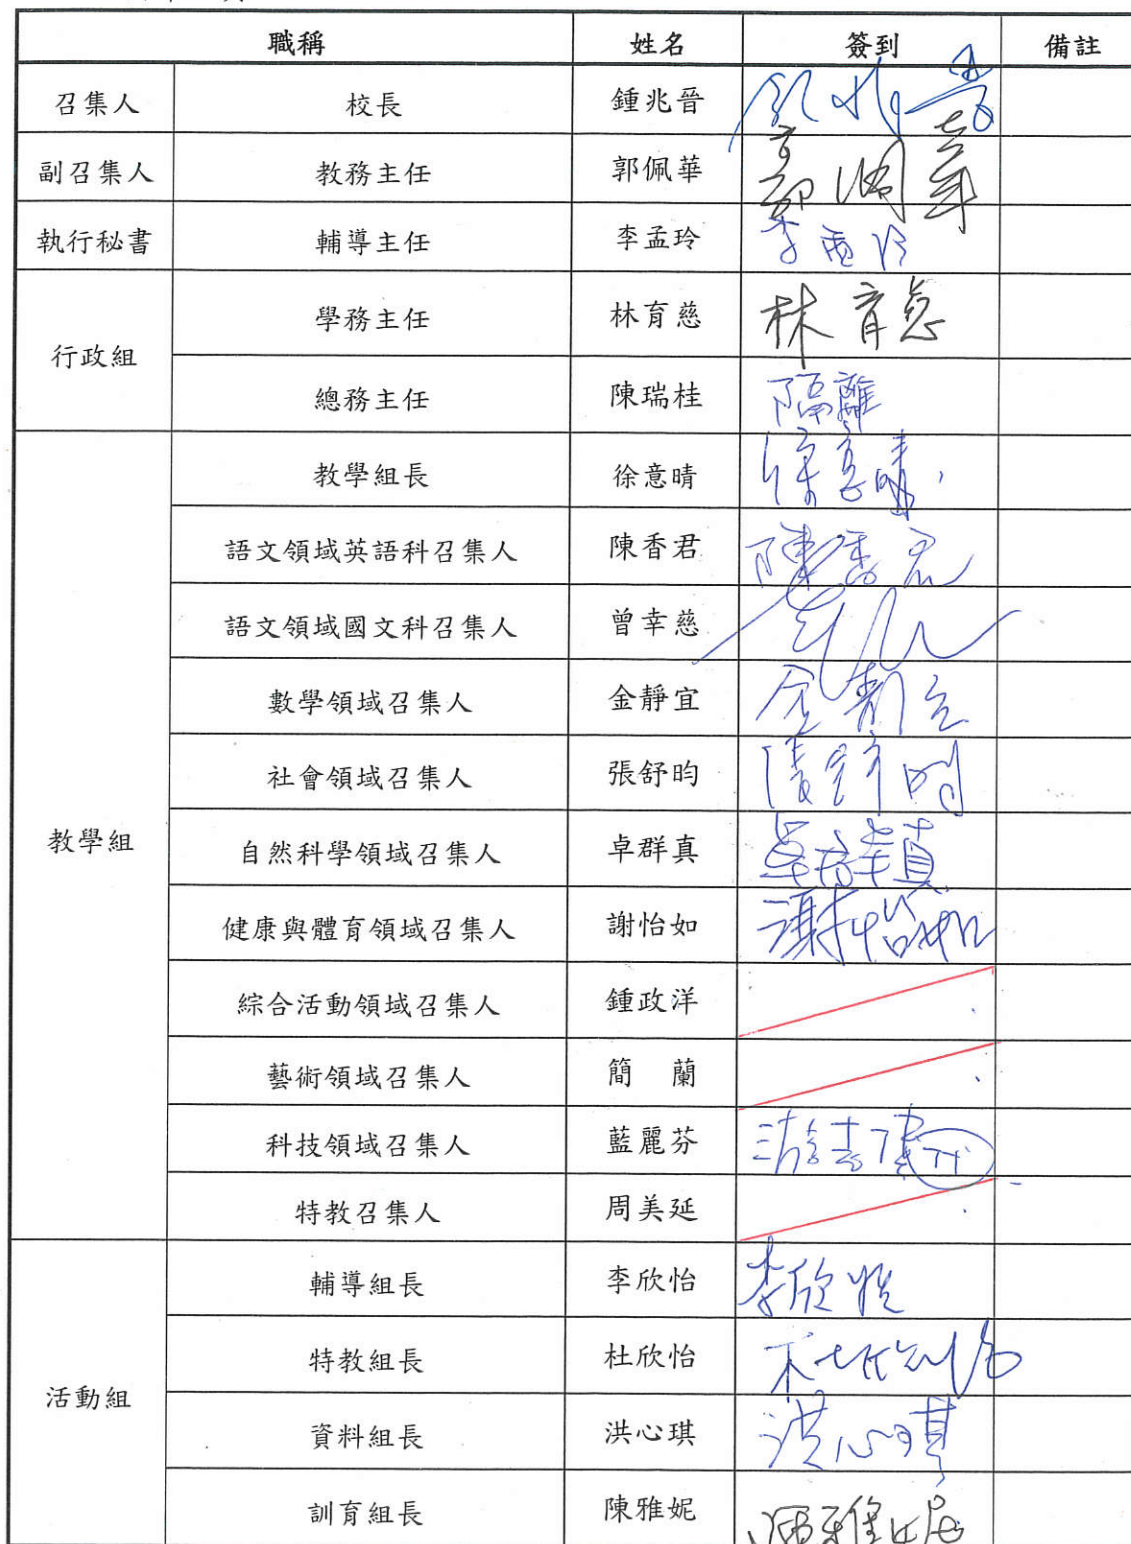 職稱 姓名 簽到 備註
召集人 校長 鍾兆晉 鍾兆晉
副召集人 教務主任 郭佩華 郭佩華
執行秘書 輔導主任 李孟玲 李孟玲
行政組 學務主任 林育慈 林育慈
總務主任 陳瑞桂 隔離
教學組 教學組長 徐意晴 徐意晴
語文領域英語科召集人 陳香君 陳香君
語文領域國文科召集人 曾幸慈
數學領域召集人 金靜宜 金靜宜
社會領域召集人 張舒昀 張舒昀
自然科學領域召集人 卓群真 卓群真
健康與體育領域召集人 謝怡如 謝怡如
綜合活動領域召集人 鍾政洋
藝術領域召集人 簡 蘭
科技領域召集人 藍麗芬
特教召集人 周美延
活動組 輔導組長 李欣怡 李欣怡
特教組長 杜欣怡
資料組長 洪心琪 洪心琪
訓育組長 陳雅妮 陳雅妮